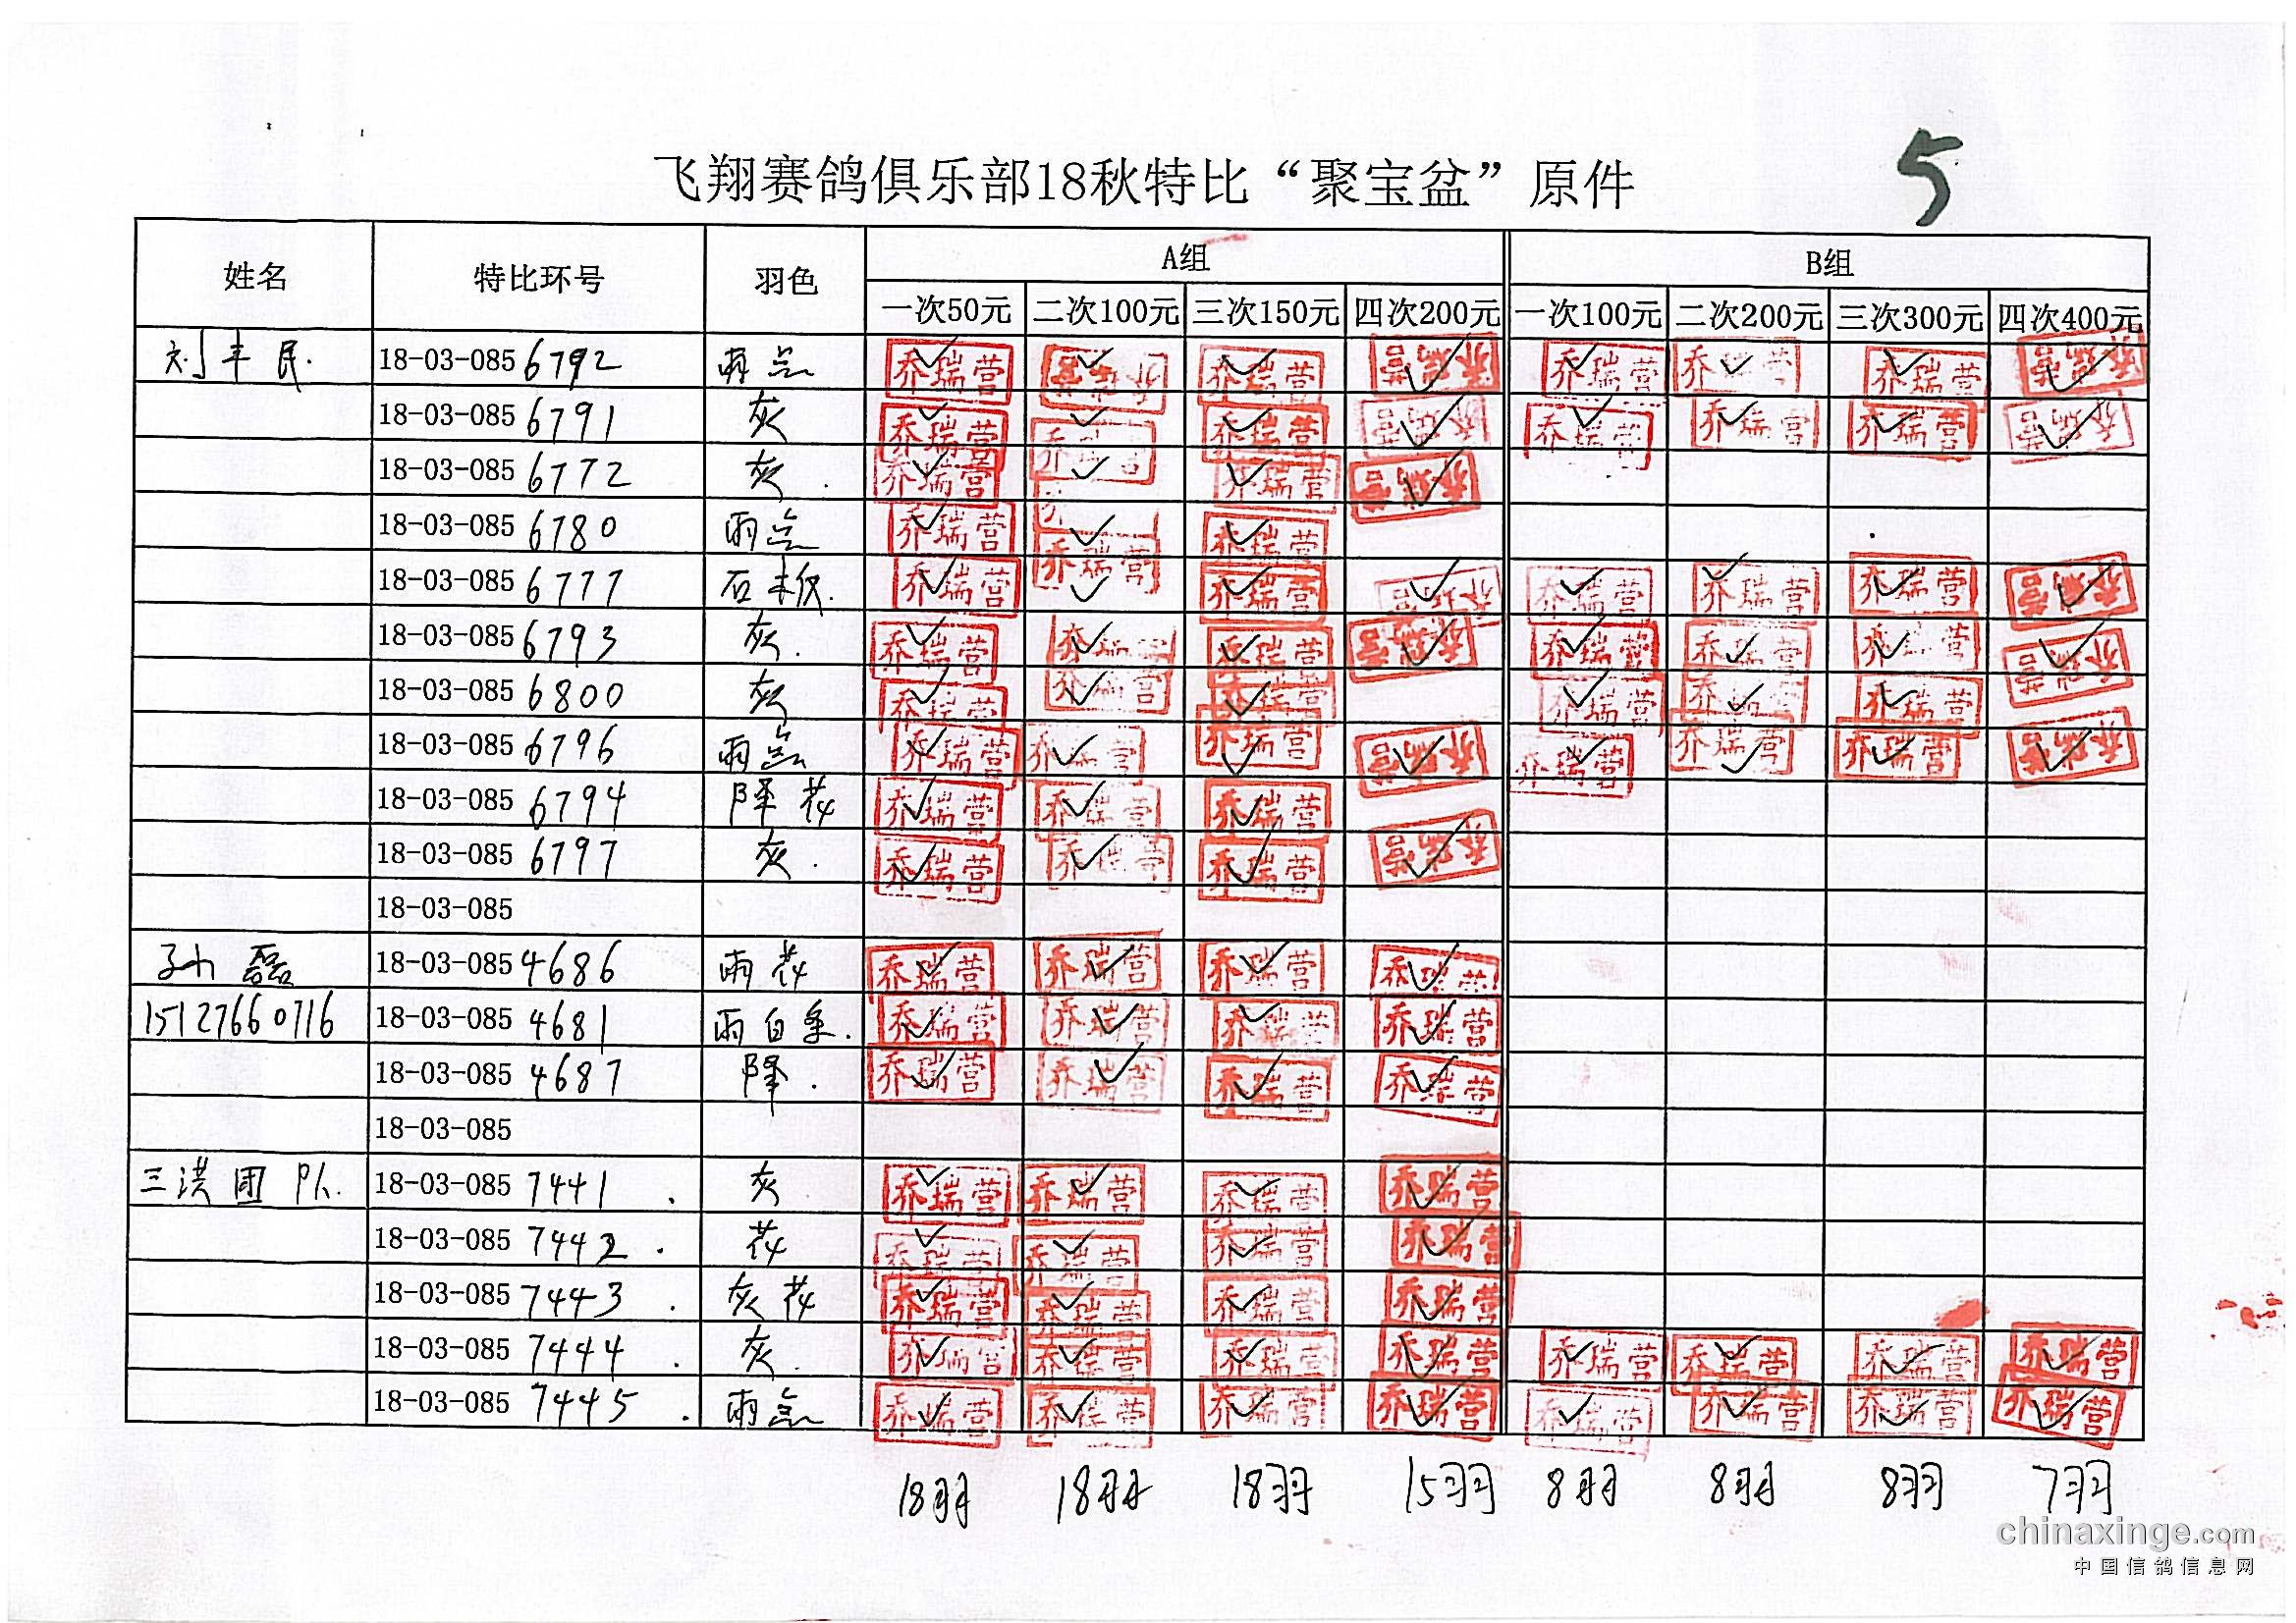 飞翔赛鸽俱乐部18秋特比“聚宝盆”原件 5
姓名 特比环号 羽色 A组 B组
一次50元 二次100元 三次150元 四次200元 一次100元 二次200元 三次300元 四次400元
刘丰民. 18-03-085 6792 雨点 乔瑞营 ✓ 乔瑞营 ✓ 乔瑞营 ✓ 乔瑞营 ✓ 乔瑞营 ✓ 乔瑞营 ✓ 乔瑞营 ✓ 乔瑞营 ✓
18-03-085 6791 灰 乔瑞营 ✓ 乔瑞营 ✓ 乔瑞营 ✓ 乔瑞营 ✓ 乔瑞营 ✓ 乔瑞营 ✓ 乔瑞营 ✓ 乔瑞营 ✓
18-03-085 6772 灰. 乔瑞营 ✓ ✓ 乔瑞营 ✓ 乔瑞营 ✓
18-03-085 6780 雨点 乔瑞营 ✓ 乔瑞营 ✓ 乔瑞营 ✓
18-03-085 6777 石板. 乔瑞营 ✓ ✓ 乔瑞营 ✓ 乔瑞营 ✓ 乔瑞营 ✓ 乔瑞营 ✓ 乔瑞营 ✓ 乔瑞营 ✓
18-03-085 6793 灰. 乔瑞营 ✓ 乔瑞营 ✓ 乔瑞营 ✓ 乔瑞营 ✓ 乔瑞营 ✓ 乔瑞营 ✓ 乔瑞营 ✓ 乔瑞营 ✓
18-03-085 6800 灰 乔瑞营 ✓ 乔瑞营 ✓ 乔瑞营 ✓ 乔瑞营 ✓ 乔瑞营 ✓ 乔瑞营 ✓
18-03-085 6796 雨点 乔瑞营 ✓ 乔瑞营 ✓ 乔瑞营 ✓ 乔瑞营 ✓ 乔瑞营 ✓ 乔瑞营 ✓ 乔瑞营 ✓ 乔瑞营 ✓
18-03-085 6794 降花 乔瑞营 ✓ 乔瑞营 ✓ 乔瑞营 ✓
18-03-085 6797 灰. 乔瑞营 ✓ 乔瑞营 ✓ 乔瑞营 ✓ 乔瑞营 ✓
18-03-085
孙磊 18-03-085 4686 雨花 乔瑞营 ✓ 乔瑞营 ✓ 乔瑞营 ✓ 乔瑞营 ✓
15127660716 18-03-085 4681 雨白条. 乔瑞营 ✓ 乔瑞营 ✓ 乔瑞营 ✓ 乔瑞营 ✓
18-03-085 4687 降. 乔瑞营 ✓ 乔瑞营 ✓ 乔瑞营 ✓ 乔瑞营 ✓
18-03-085
三洪团队. 18-03-085 7441. 灰 乔瑞营 ✓ 乔瑞营 ✓ 乔瑞营 ✓ 乔瑞营 ✓
18-03-085 7442. 花 乔瑞营 ✓ 乔瑞营 ✓ 乔瑞营 ✓ 乔瑞营 ✓
18-03-085 7443. 灰花 乔瑞营 ✓ 乔瑞营 ✓ 乔瑞营 ✓ 乔瑞营 ✓
18-03-085 7444. 灰. 乔瑞营 ✓ 乔瑞营 ✓ 乔瑞营 ✓ 乔瑞营 ✓ 乔瑞营 ✓ 乔瑞营 ✓ 乔瑞营 ✓ 乔瑞营 ✓
18-03-085 7445. 雨点 乔瑞营 ✓ 乔瑞营 ✓ 乔瑞营 ✓ 乔瑞营 ✓ 乔瑞营 ✓ 乔瑞营 ✓ 乔瑞营 ✓ 乔瑞营 ✓
18羽 18羽 18羽 15羽 8羽 8羽 8羽 7羽
chinaxinge.com
中国信鸽信息网